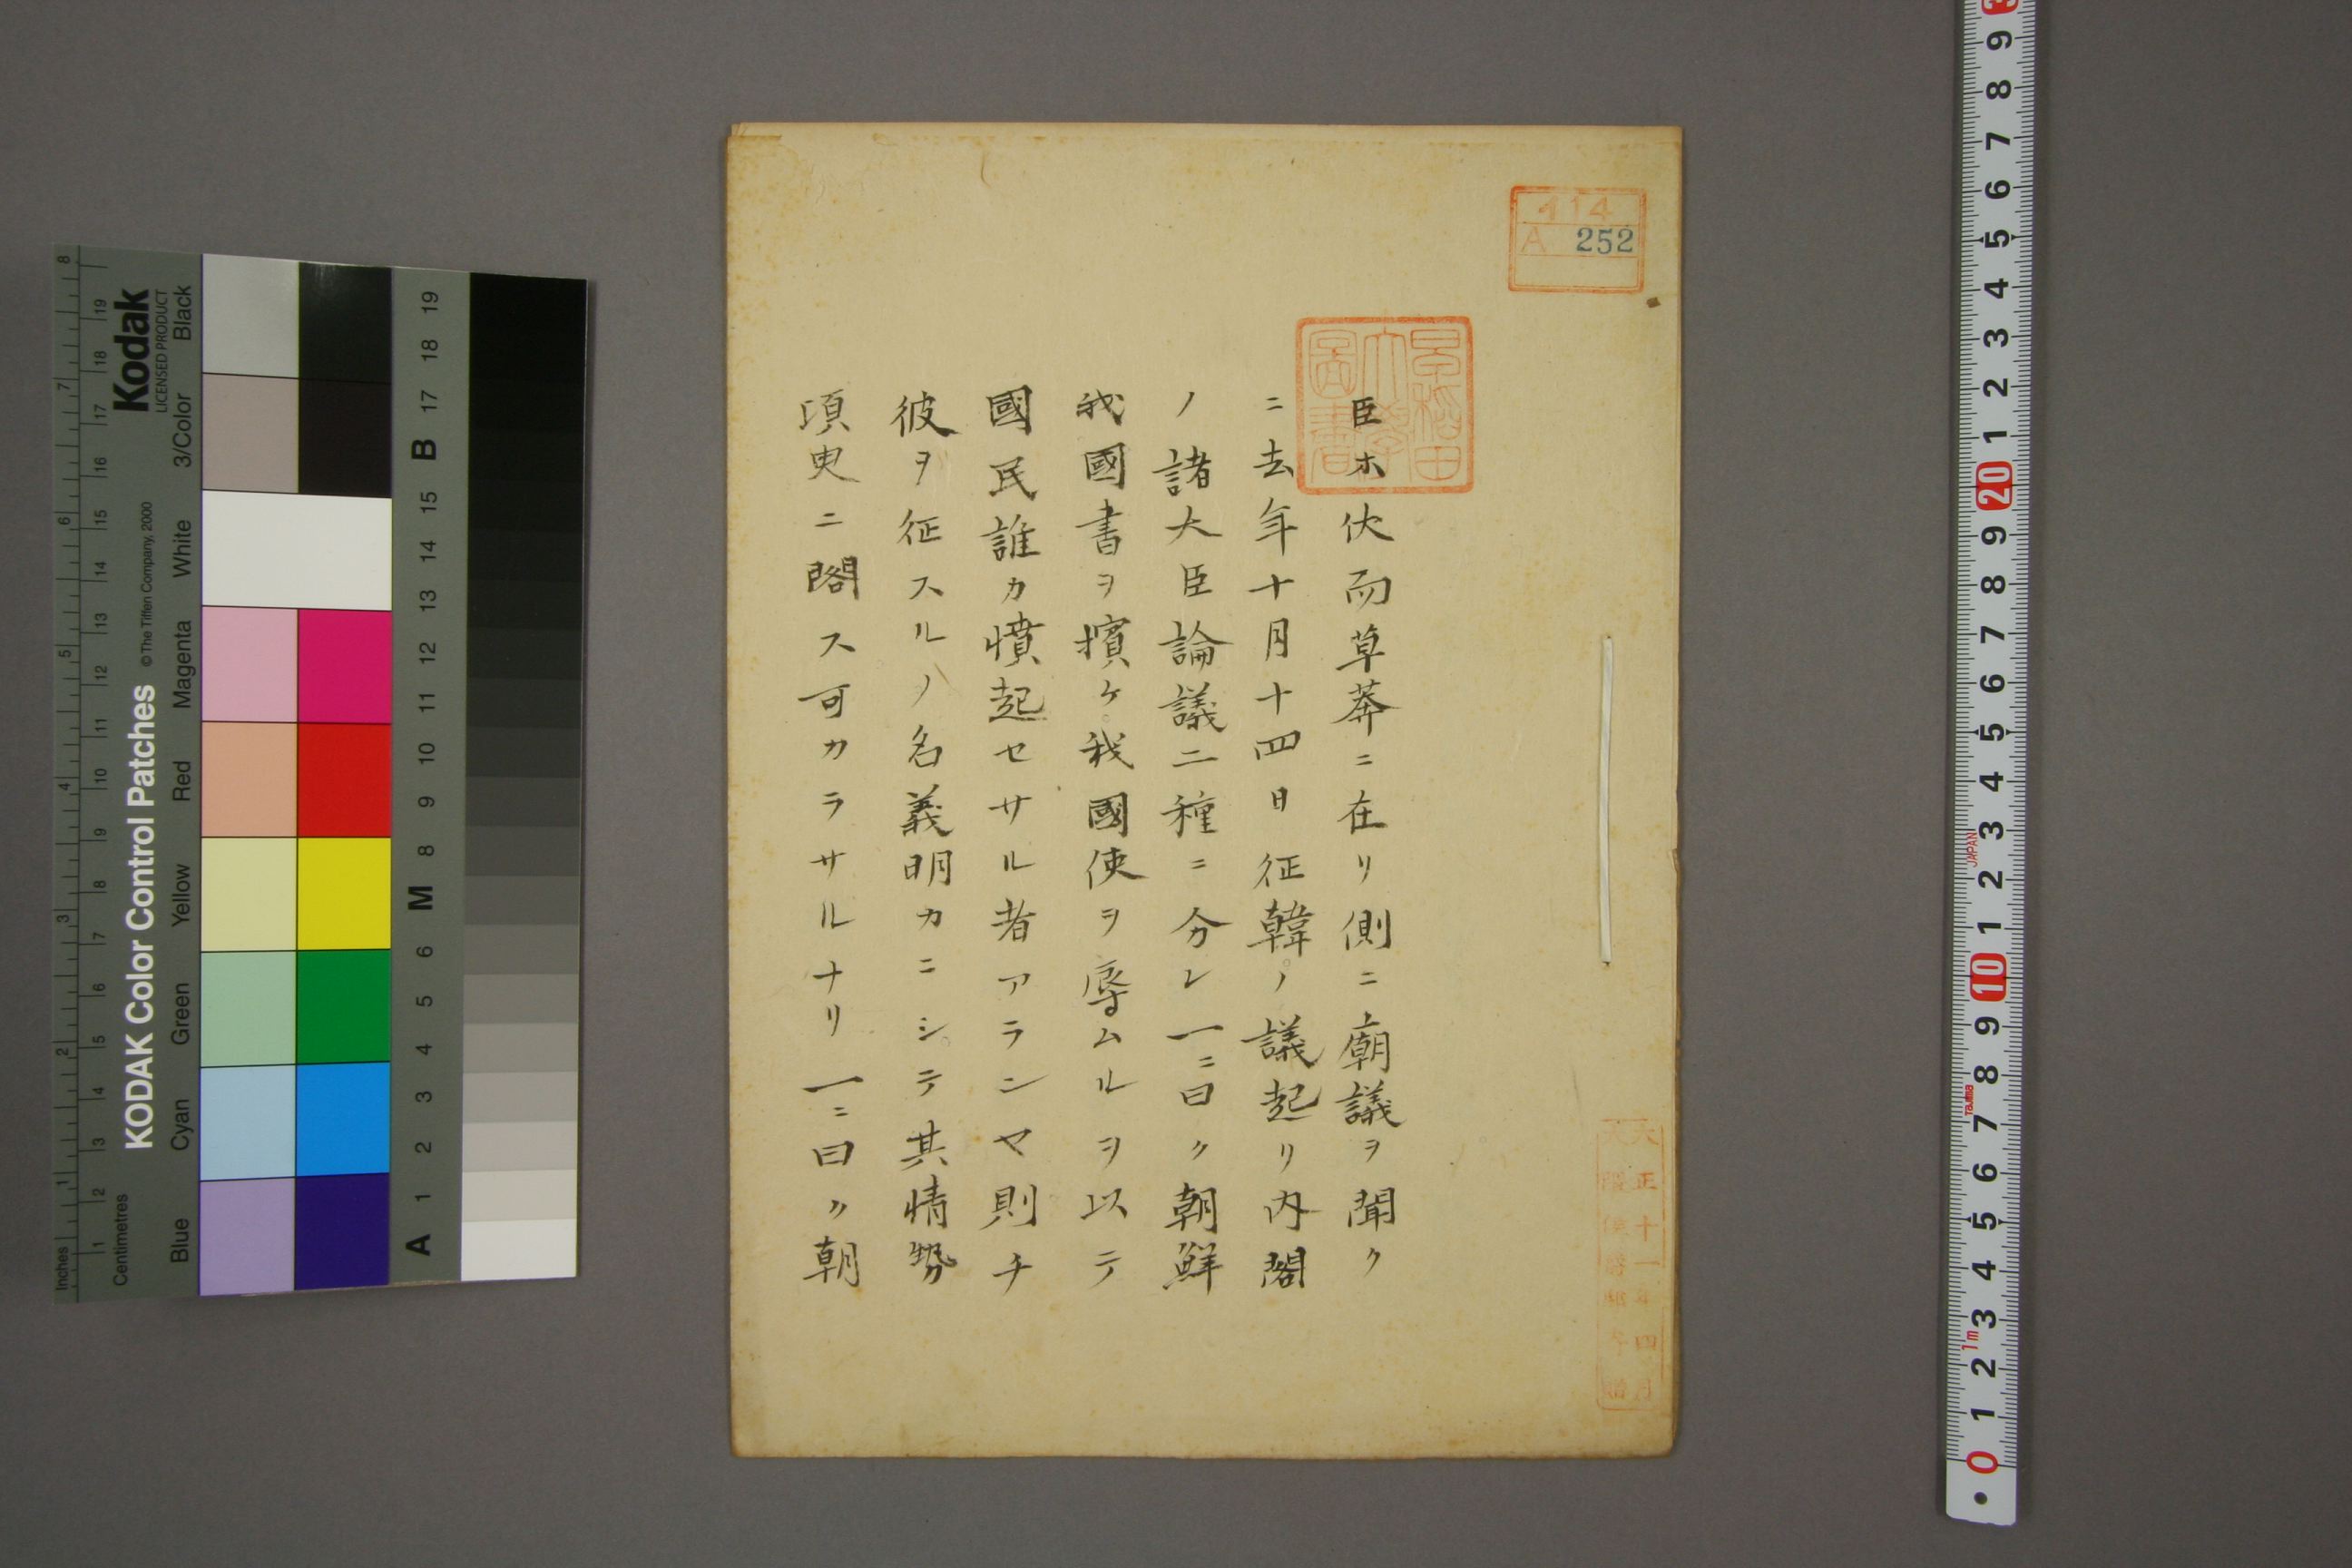 414
A 252
早稲田
大學
圖書
臣ホ伏而草莽ニ在リ側ニ廟議ヲ聞ク
ニ去年十月十四日征韓ノ議起リ内閣
ノ諸大臣論議二種ニ分レ一ニ曰ク朝鮮
我國書ヲ擯ケ我國使ヲ辱ムルヲ以テ
國民誰カ憤起セサル者アランヤ則チ
彼ヲ征スルノ名義明カニシテ其情勢
須臾ニ閣ス可カラサルナリ一ニ曰ク朝
大正十一年四月
大隈侯爵家寄贈
Kodak
LICENSED PRODUCT
KODAK Color Control Patches
© The Tiffen Company, 2000
Blue Cyan Green Yellow Red Magenta White 3/Color Black
Inches 1 2 3 4 5 6 7 8
Centimetres 1 2 3 4 5 6 7 8 9 10 11 12 13 14 15 16 17 18 19
A 1 2 3 4 5 6 M 8 9 10 11 12 13 14 15 B 17 18 19
0 1 2 3 4 5 6 7 8 9 10 1 2 3 4 5 6 7 8 9 20 1 2 3 4 5 6 7 8 9 3
1m
Tajima
JAPAN